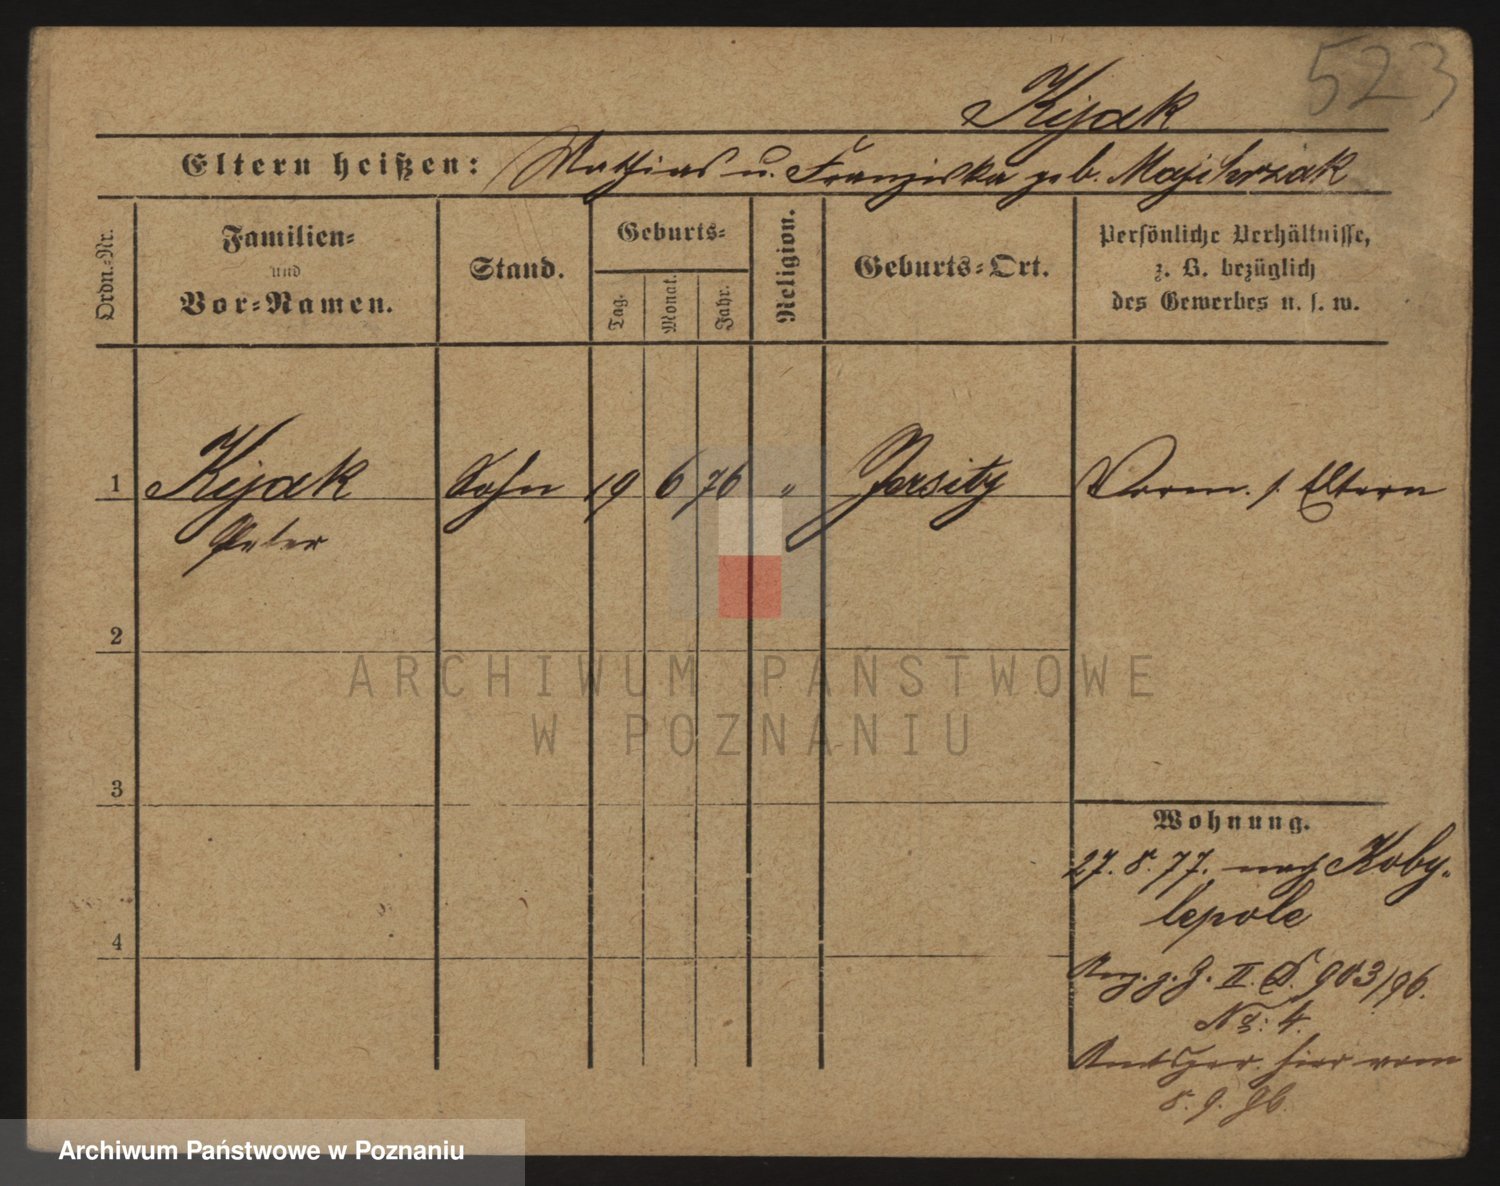 523
Kijak
Eltern heißen: Mathias u. Franziska geb. Majchrzak
Ordn.-Nr.
Familien-
und
Vor-Namen.
Stand.
Geburts-
Tag.
Monat.
Jahr.
Religion.
Geburts-Ort.
Persönliche Verhältnisse,
z. B. bezüglich
des Gewerbes u. s. w.
1 Kijak Sohn 19 6 76 " Jersitz Verm. s. Eltern
Peter
2
3
4
Wohnung.
27. 8. 77. nach Koby-
lepole
II. D. 903/96.
No: 4.
Amtsger. hier vom
8. 9. 96
ARCHIWUM PAŃSTWOWE
W POZNANIU
Archiwum Państwowe w Poznaniu